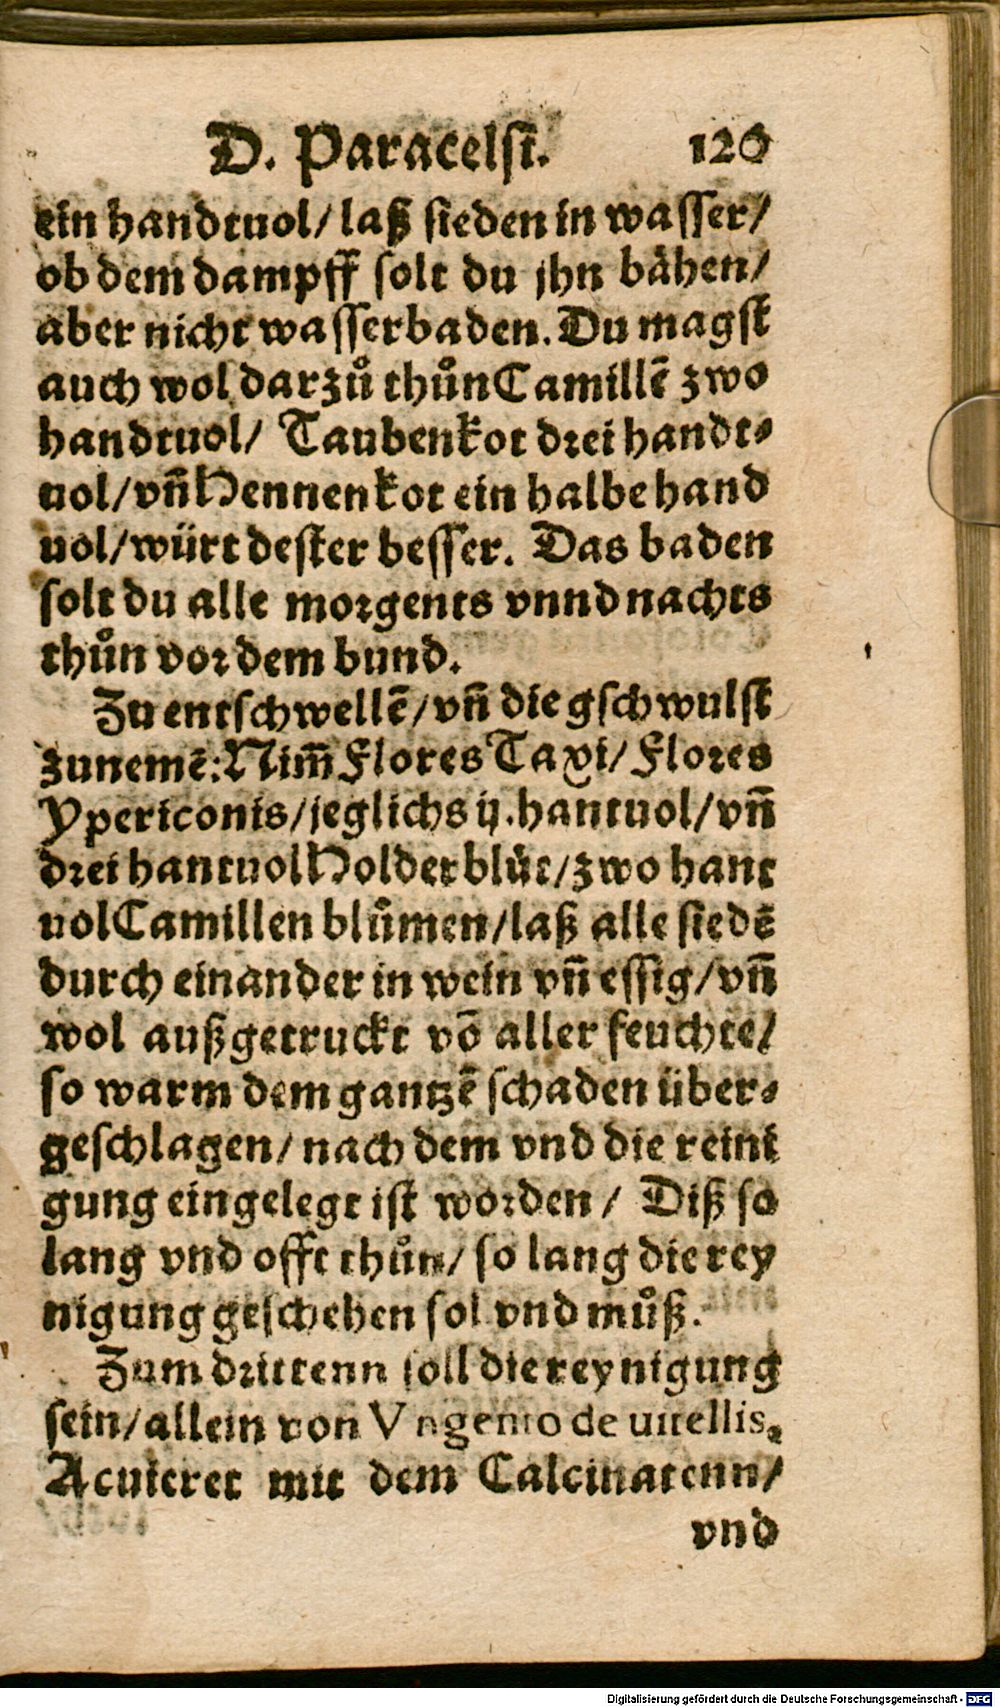 D. Paracelsi. 126
ein handtuol/ laß sieden in wasser/
ob dem dampff solt du jhn bähen/
aber nicht wasserbaden. Du magst
auch wol darzů thůn Camillẽ zwo
handtuol/ Taubenkot drei handt⸗
uol/ vñ Hennenkot ein halbe hand
uol/ würt dester besser. Das baden
solt du alle morgents vnnd nachts
thůn vor dem bund.
Zu entschwellẽ/ vñ die gschwulst
zunemẽ: Nim̃ Flores Taxi/ Flores
Ypericonis/ jeglichs ij. hantuol/ vñ
drei hantuol Holderblüt/ zwo hant
uol Camillen blůmen/ laß alle siedẽ
durch einander in wein vñ essig/ vñ
wol außgetruckt võ aller feuchte/
so warm dem gantzẽ schaden über⸗
geschlagen/ nach dem vnd die reini
gung eingelegt ist worden/ Diß so
lang vnd offt thůn/ so lang die rey
nigung geschehen sol vnd můß.
Zum drittenn soll die reynigung
sein/ allein von Vngento de uitellis,
Acuieret mit dem Calcinatenn/
vnd
Digitalisierung gefördert durch die Deutsche Forschungsgemeinschaft - DFG